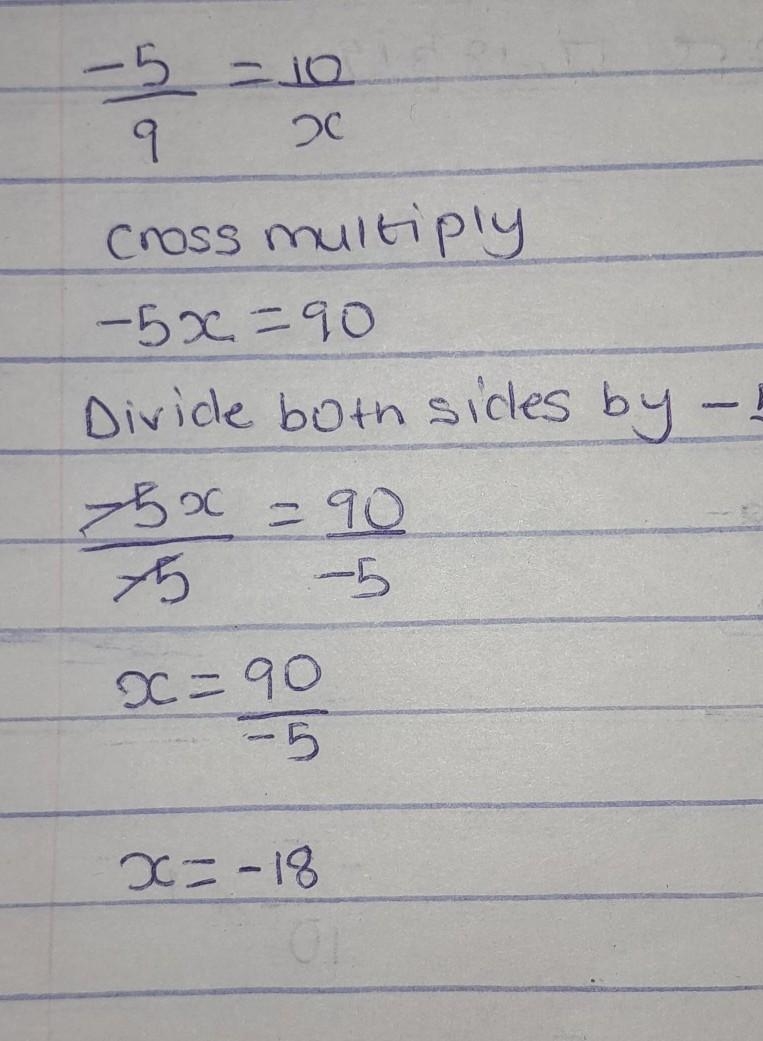 -5/9 = 10/x
Cross multiply
-5x = 90
Divide both sides by -5
-5x/-5 = 90/-5
x = 90/-5
x = -18